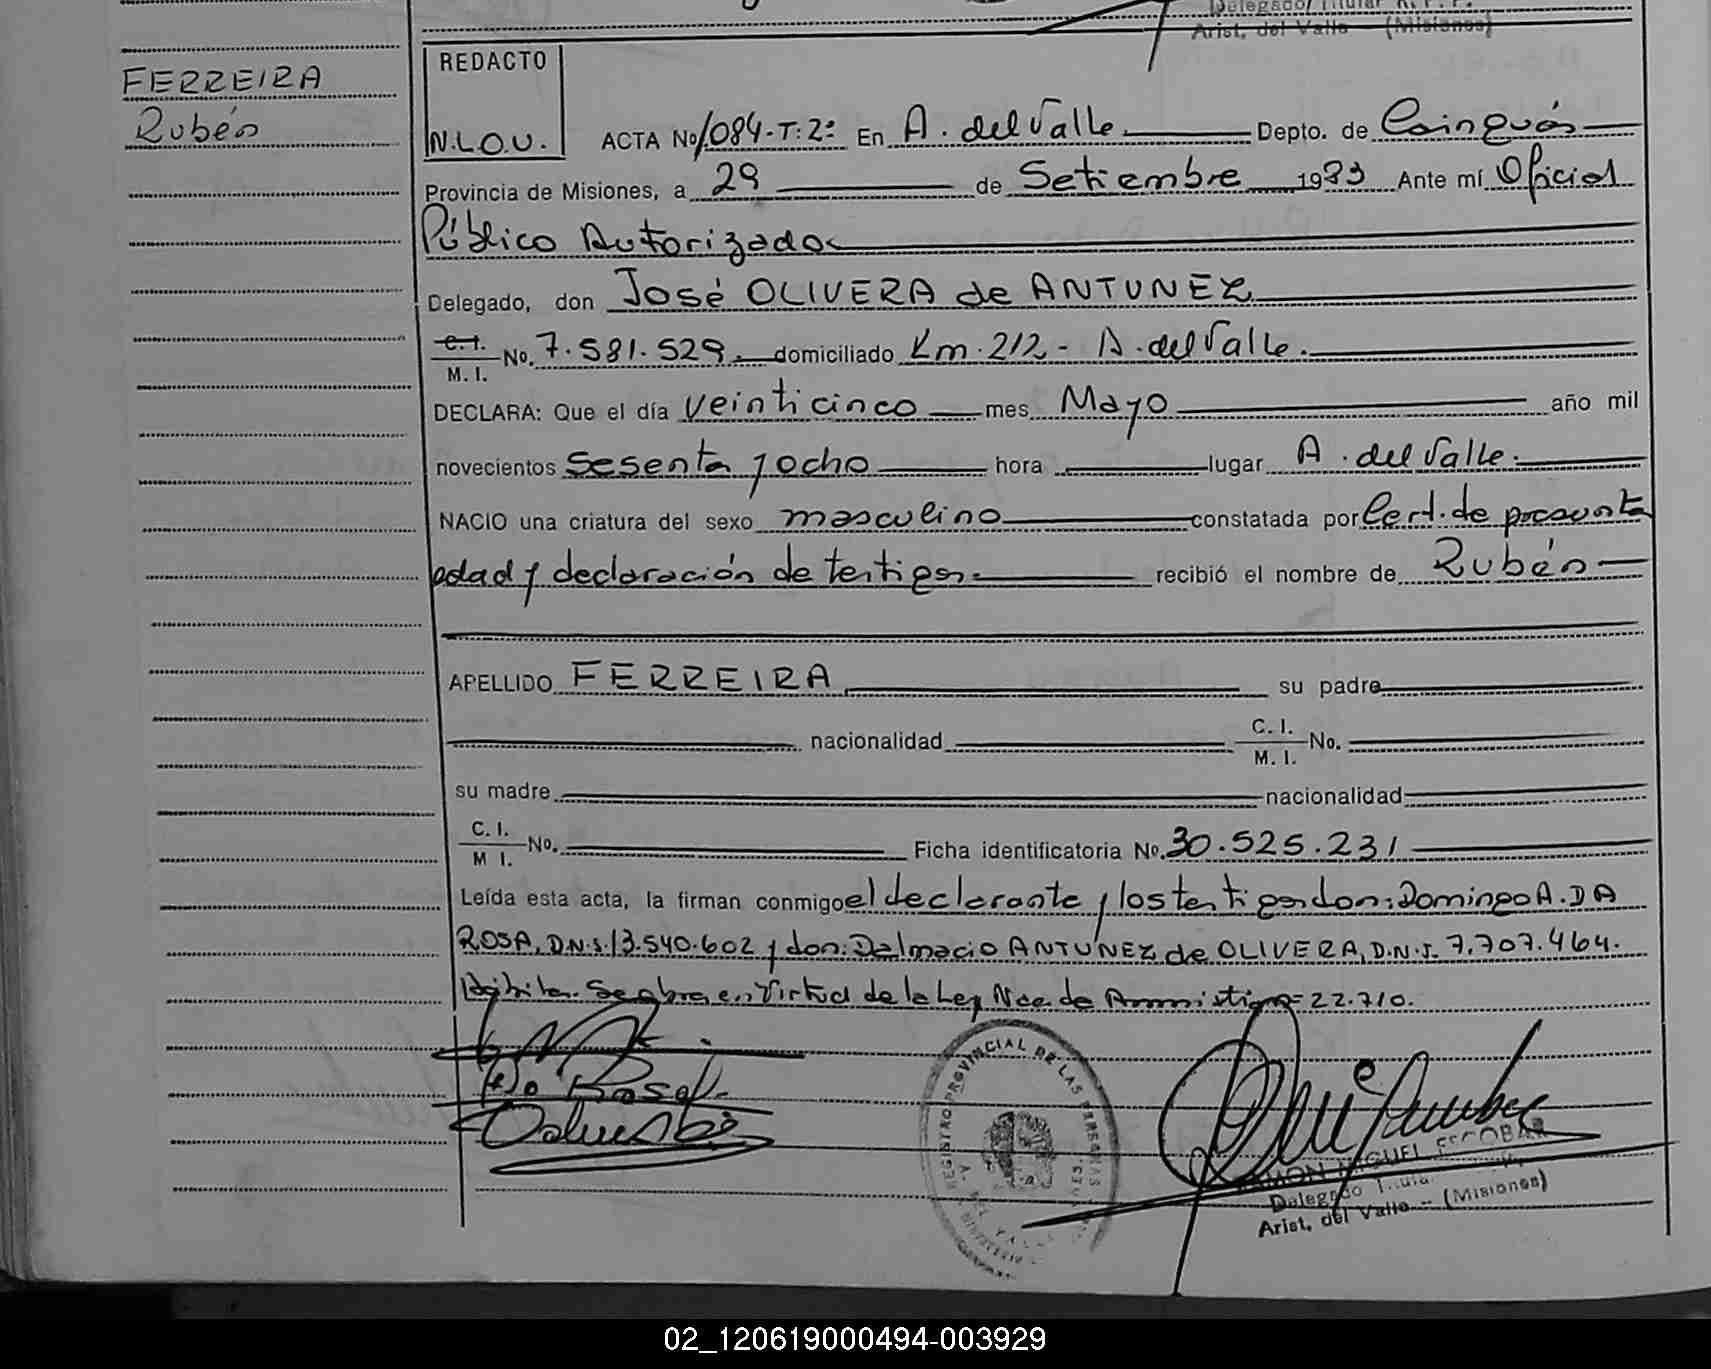 Delegado Titular R. P. P.
Arist. del Valle (Misiones)
FERREIRA
Rubén
REDACTO
N.L.O.U.
ACTA No 1084-T:2º En A. del Valle Depto. de Cainguás
Provincia de Misiones, a 29 de Setiembre 1983 Ante mí Oficial
Público Autorizado
Delegado, don José OLIVERA de ANTUNEZ
C. I. / M. I. No. 7.581.529. domiciliado Km. 212 - A. del Valle.
DECLARA: Que el día veinticinco mes Mayo año mil
novecientos sesenta y ocho hora lugar A. del Valle.
NACIO una criatura del sexo masculino constatada por Cert. de presunta
edad y declaración de testigos. recibió el nombre de Rubén
APELLIDO FERREIRA su padre
nacionalidad C. I. / M. I. No.
su madre nacionalidad
C. I. / M I. No. Ficha identificatoria No. 30.525.231
Leída esta acta, la firman conmigo el declarante y los testigos don: Domingo A. DA
ROSA, D.N.I. 13.540.602 y don: Dalmacio ANTUNEZ de OLIVERA, D.N.I. 7.707.464.
Se abre en Virtud de la Ley Nac. de Amnistia = 22.710.
Da Rosa
REGISTRO PROVINCIAL DE LAS PERSONAS
RAMON MIGUEL ESCOBAR
Delegado Titular
Arist. del Valle - (Misiones)
02_120619000494-003929